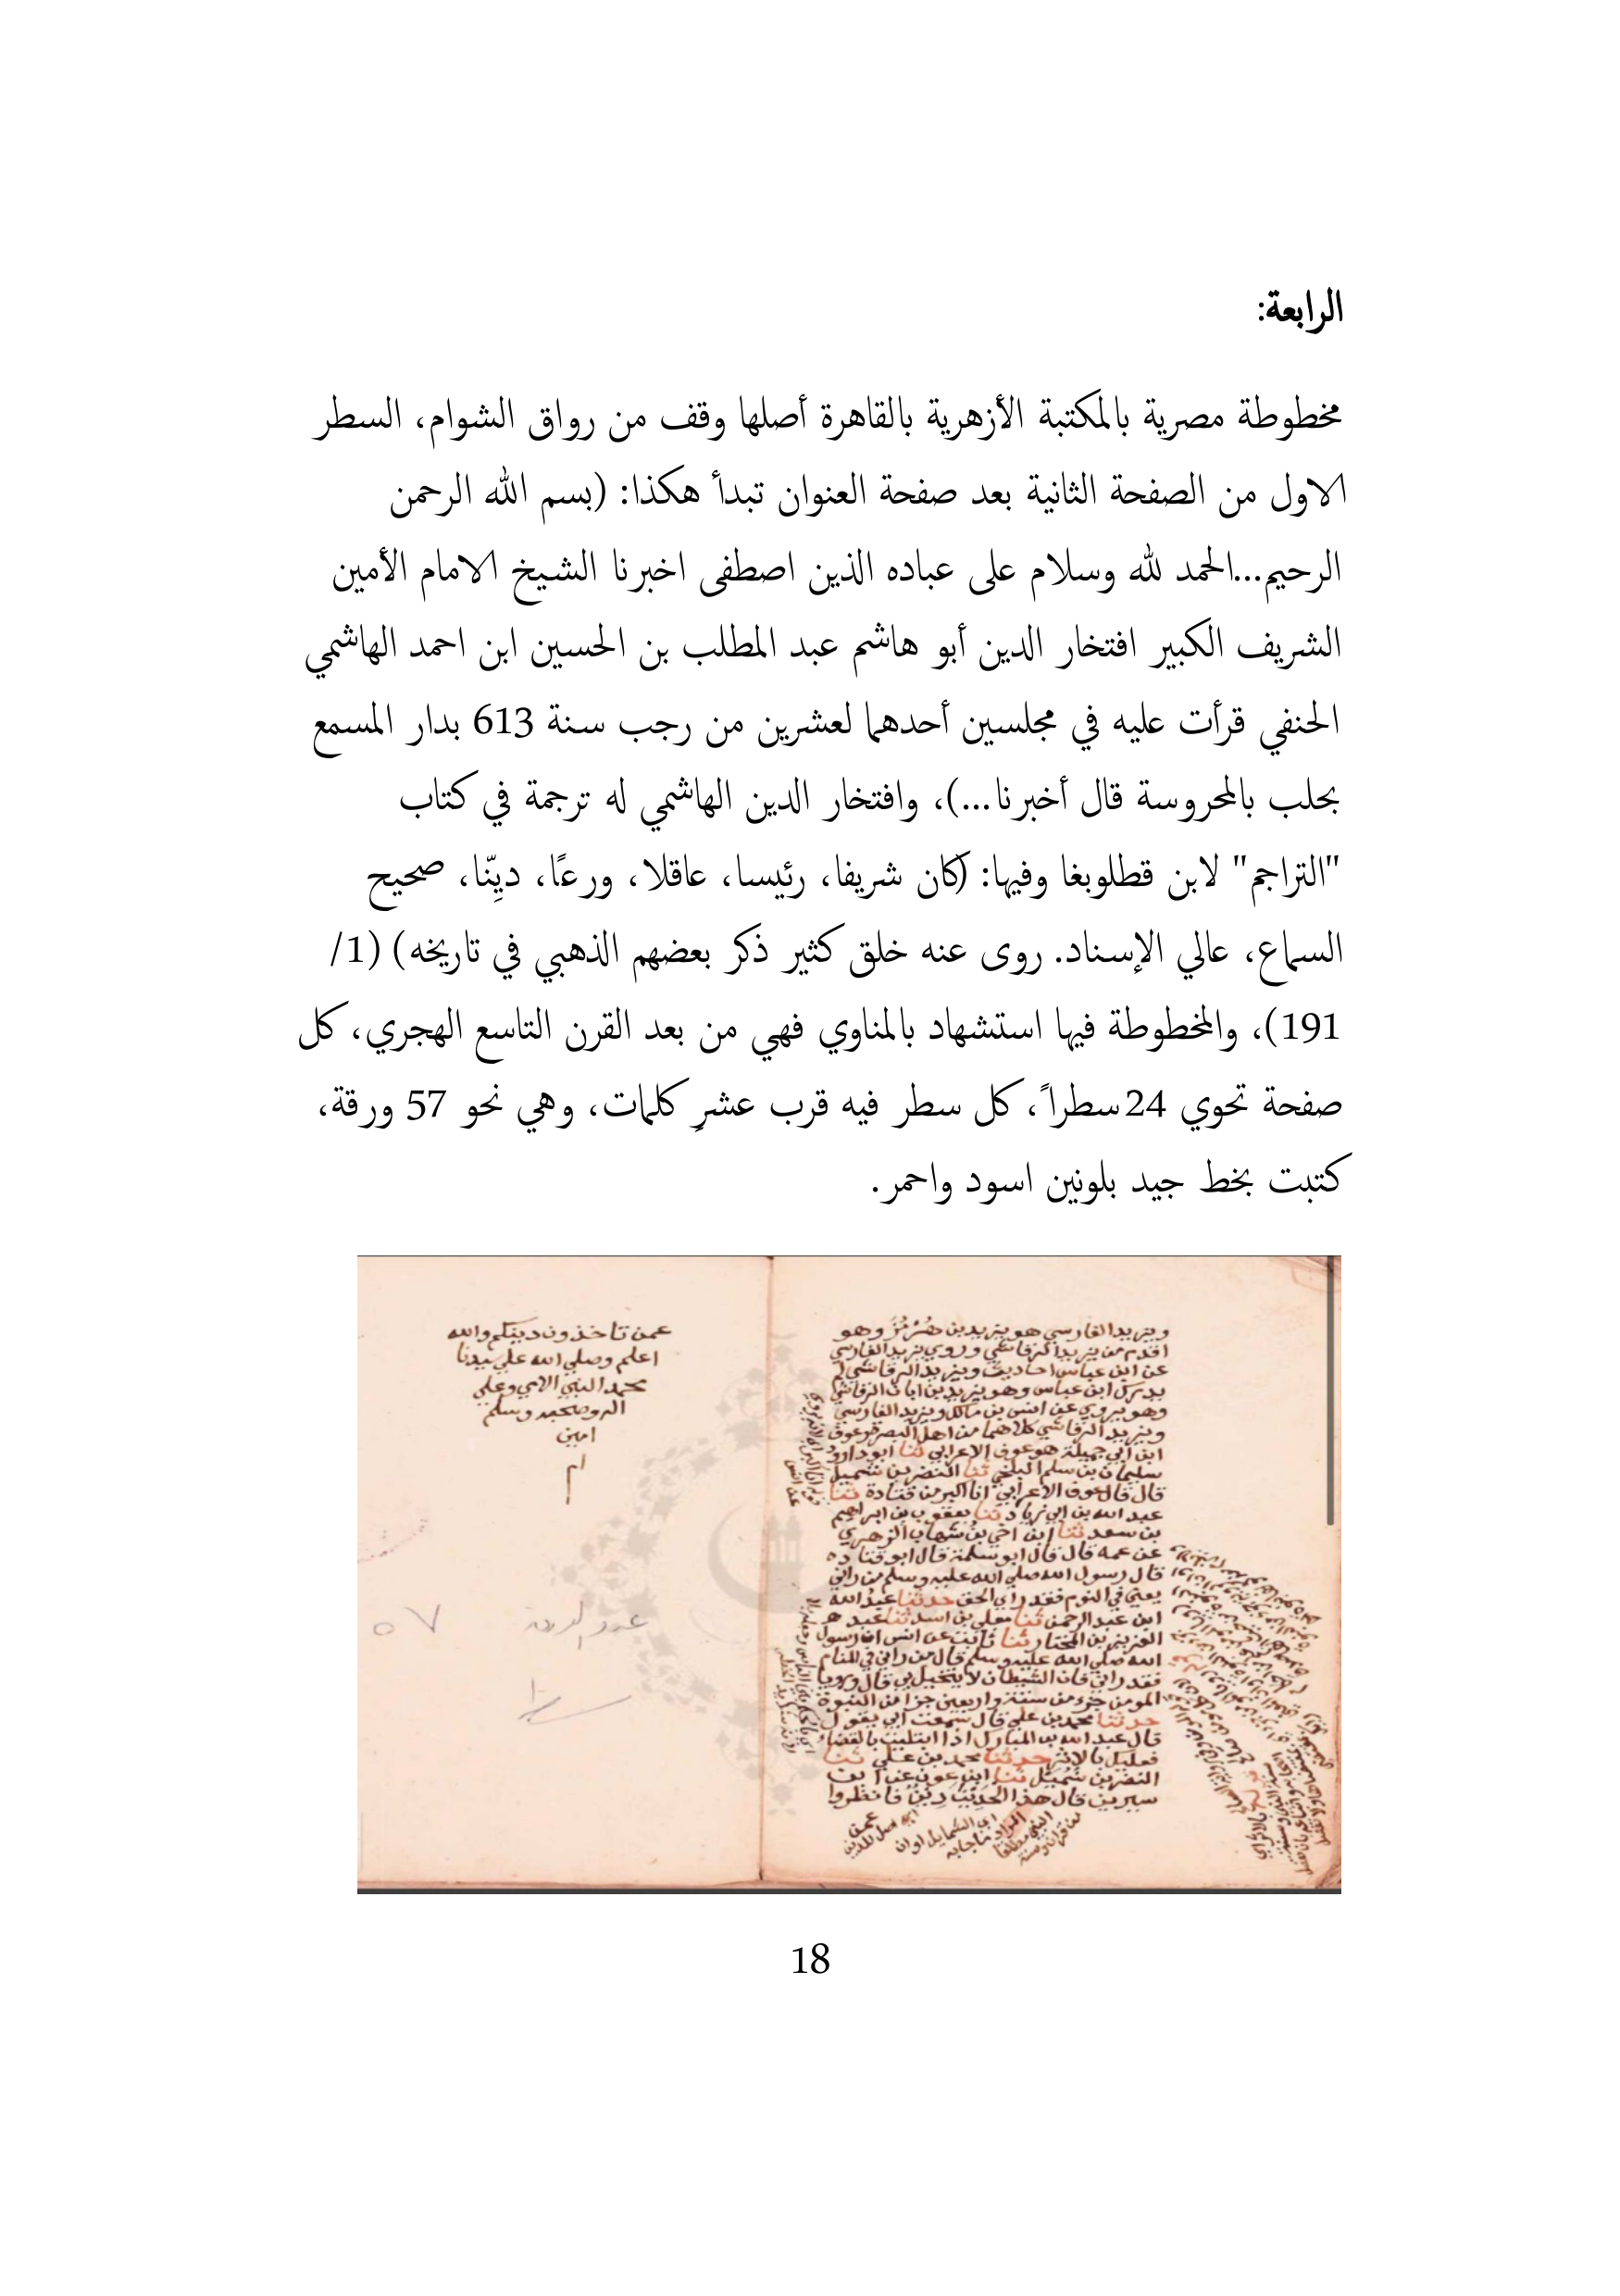 الرابعة:
مخطوطة مصرية بالمكتبة الأزهرية بالقاهرة أصلها وقف من رواق الشوام، السطر
الاول من الصفحة الثانية بعد صفحة العنوان تبدأ هكذا: (بسم الله الرحمن
الرحيم...الحمد لله وسلام على عباده الذين اصطفى اخبرنا الشيخ الامام الأمين
الشريف الكبير افتخار الدين أبو هاشم عبد المطلب بن الحسين ابن احمد الهاشمي
الحنفي قرأت عليه في مجلسين أحدهما لعشرين من رجب سنة 613 بدار المسمع
بحلب بالمحروسة قال أخبرنا...)، وافتخار الدين الهاشمي له ترجمة في كتاب
"التراجم" لابن قطلوبغا وفيها: (كان شريفا، رئيسا، عاقلا، ورعًا، ديِنّا، صحيح
السماع، عالي الإسناد. روى عنه خلق كثير ذكر بعضهم الذهبي في تاريخه) (1/
191)، والمخطوطة فيها استشهاد بالمناوي فهي من بعد القرن التاسع الهجري، كل
صفحة تحوي 24 سطراً، كل سطر فيه قرب عشرِ كلمات، وهي نحو 57 ورقة،
كتبت بخط جيد بلونين اسود واحمر.
ويزيد الفارسي هو يزيد بن هُرْمُزَ وهو
اقدم من يزيد الرقاشي وروي يزيد الفارسي
عن ابن عباس احاديث ويزيد الرقاشي لم
يدرك ابن عباس وهو يزيد بن ابان الرقاشي
وهو يروي عن انس بن مالك ويزيد الفارسي
ويزيد الرقاشي كلاهما من اهل البصرة وعوف
ابن ابي جميلة هو عوف الاعرابي ثنا ابو داود
سليمان بن سلم البلخي ثنا النضر بن شميل
قال قال عوف الاعرابي انا اكبر من قتادة ثنا
عبد الله بن ابي زياد ثنا يعقوب بن ابراهيم
بن سعد ثنا ابن اخي بن شهاب الزهري
عن عمه قال قال ابو سلمة قال ابو قتاده
قال رسول الله صلي الله عليه وسلم من راني
يعني في النوم فقد راي الحق حدثنا عبد الله
ابن عبد الرحمن ثنا معلي بن اسد ثنا عبد
العزيز بن المختار ثنا ثابت عن انس ان رسول
الله صلي الله عليه وسلم قال من راني في المنام
فقد راني فان الشيطان لا يتخيل بي قال ورويا
المومن جزء من ستة واربعين جزا من النبوة
حدثنا محمد بن علي قال سمعت ابي يقول
قال عبد الله بن المبارك اذا ابتليت بالقضاء
فعليك بالاثر حدثنا محمد بن علي ثنا
النضر بن شميل ثنا ابن عون عن ابن
سيرين قال هذا الحديث دين فانظروا
عمن
عمن تاخذون دينكم والله
اعلم وصلي الله علي سيدنا
محمد النبي الامي وعلي
اله وصحبه وسلم
امين
ام
٥٧
18